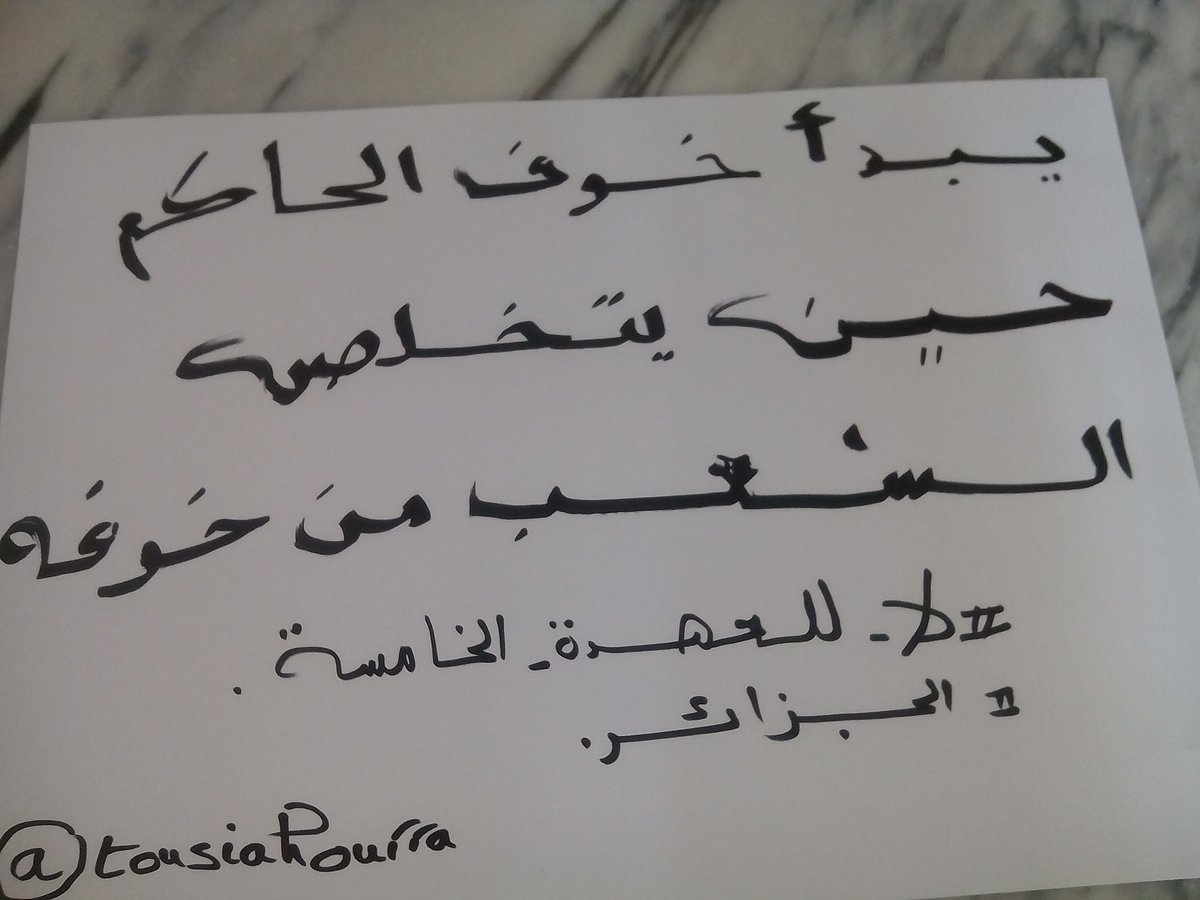 يبدأ خوف الحاكم
حين يتخلاص
الشعب من خوفه
#لا_للعهدة_الخامسة.
#الجزائر.